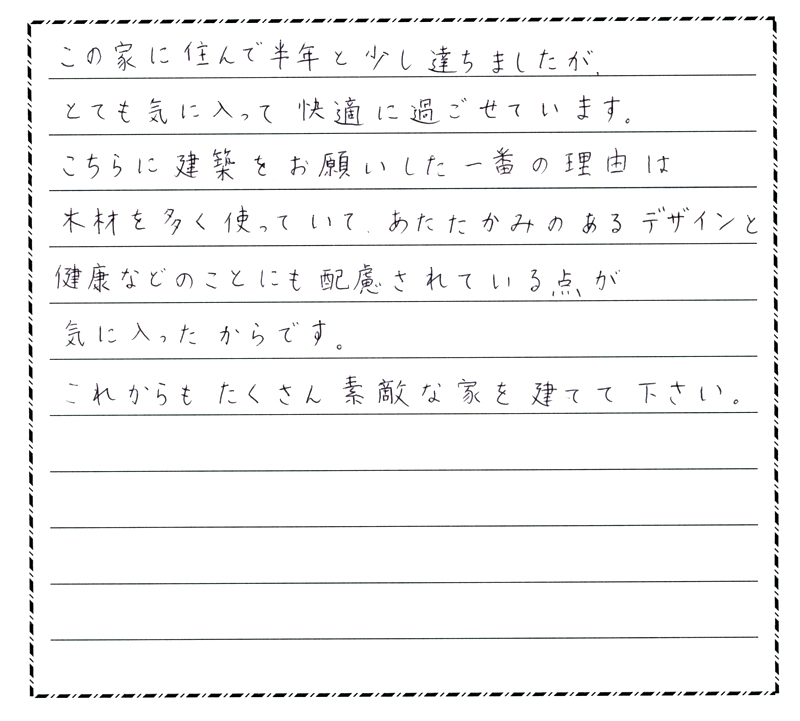 この家に住んで半年と少し達ちましたが、
とても気に入って快適に過ごせています。
こちらに建築をお願いした一番の理由は
木材を多く使っていて、あたたかみのあるデザインと
健康などのことにも配慮されている点が
気に入ったからです。
これからもたくさん素敵な家を建てて下さい。